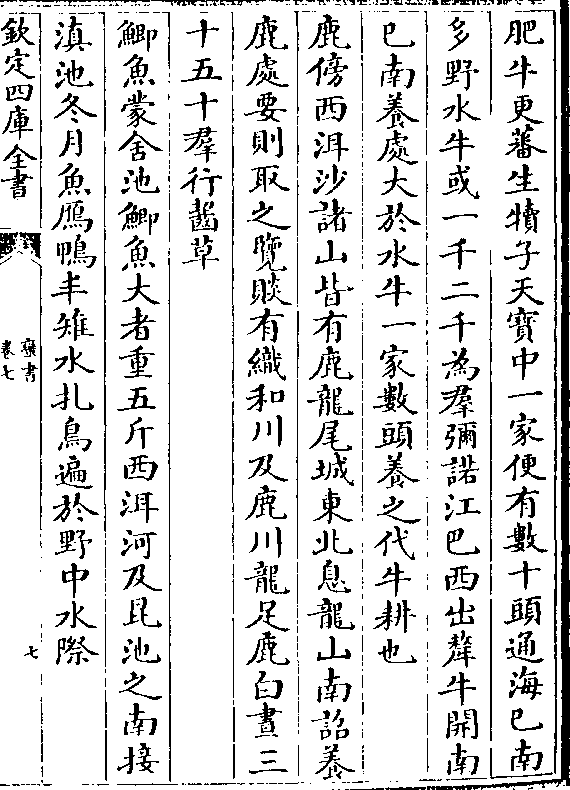 肥牛更蕃生犢子天寶中一家便有數十頭通海已南
多野水牛或一千二千為羣彌諾江巴西出犛牛開南
巳南養處大於水牛一家數頭養之代牛耕也
鹿傍西洱沙諸山皆有鹿龍尾城東北息龍山南詔養
鹿處要則取之覽賧有織和川及鹿川龍足鹿白晝三
十五十羣行齧草
鯽魚蒙舍池鯽魚大者重五斤西洱河及昆池之南接
滇池冬月魚鴈鴨丰雉水扎鳥遍於野中水際
欽定四庫全書
蠻書
卷七
七